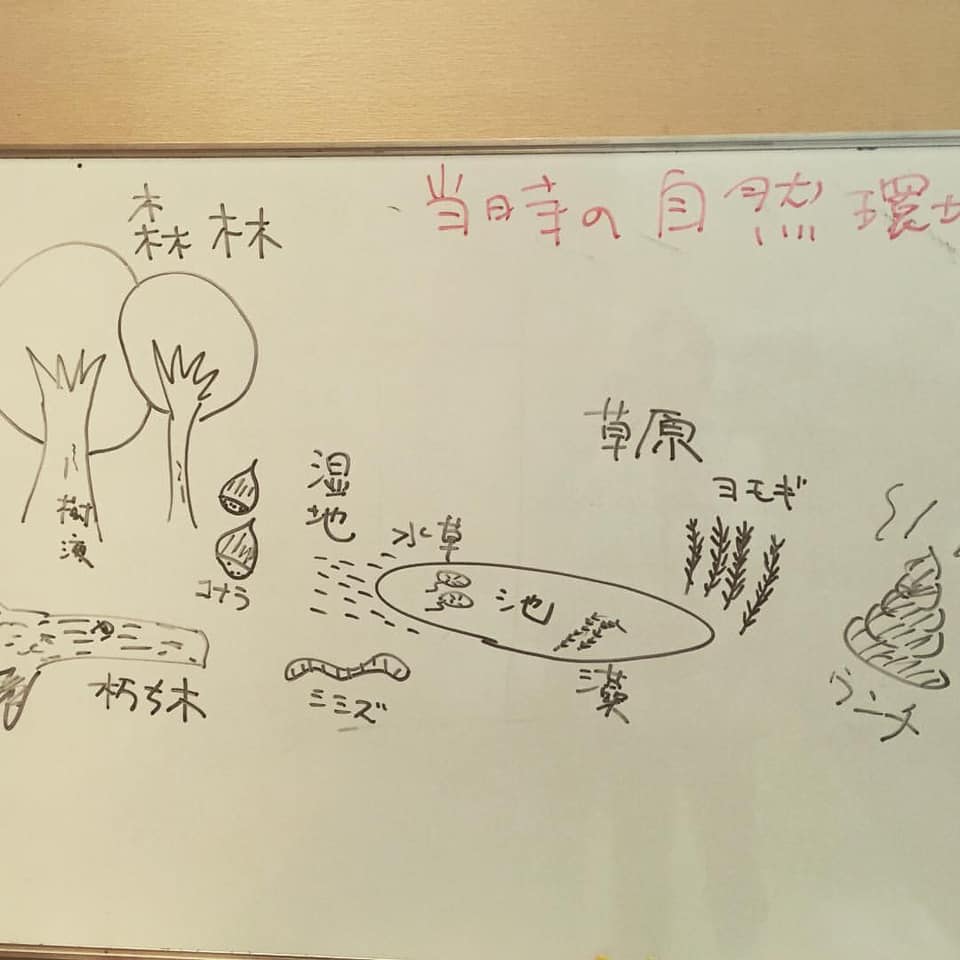 当時の自然環
森林
草原
湿地
ヨモギ
水草
樹液
コナラ
池
朽ち木
ミミズ
藻
ウンチ